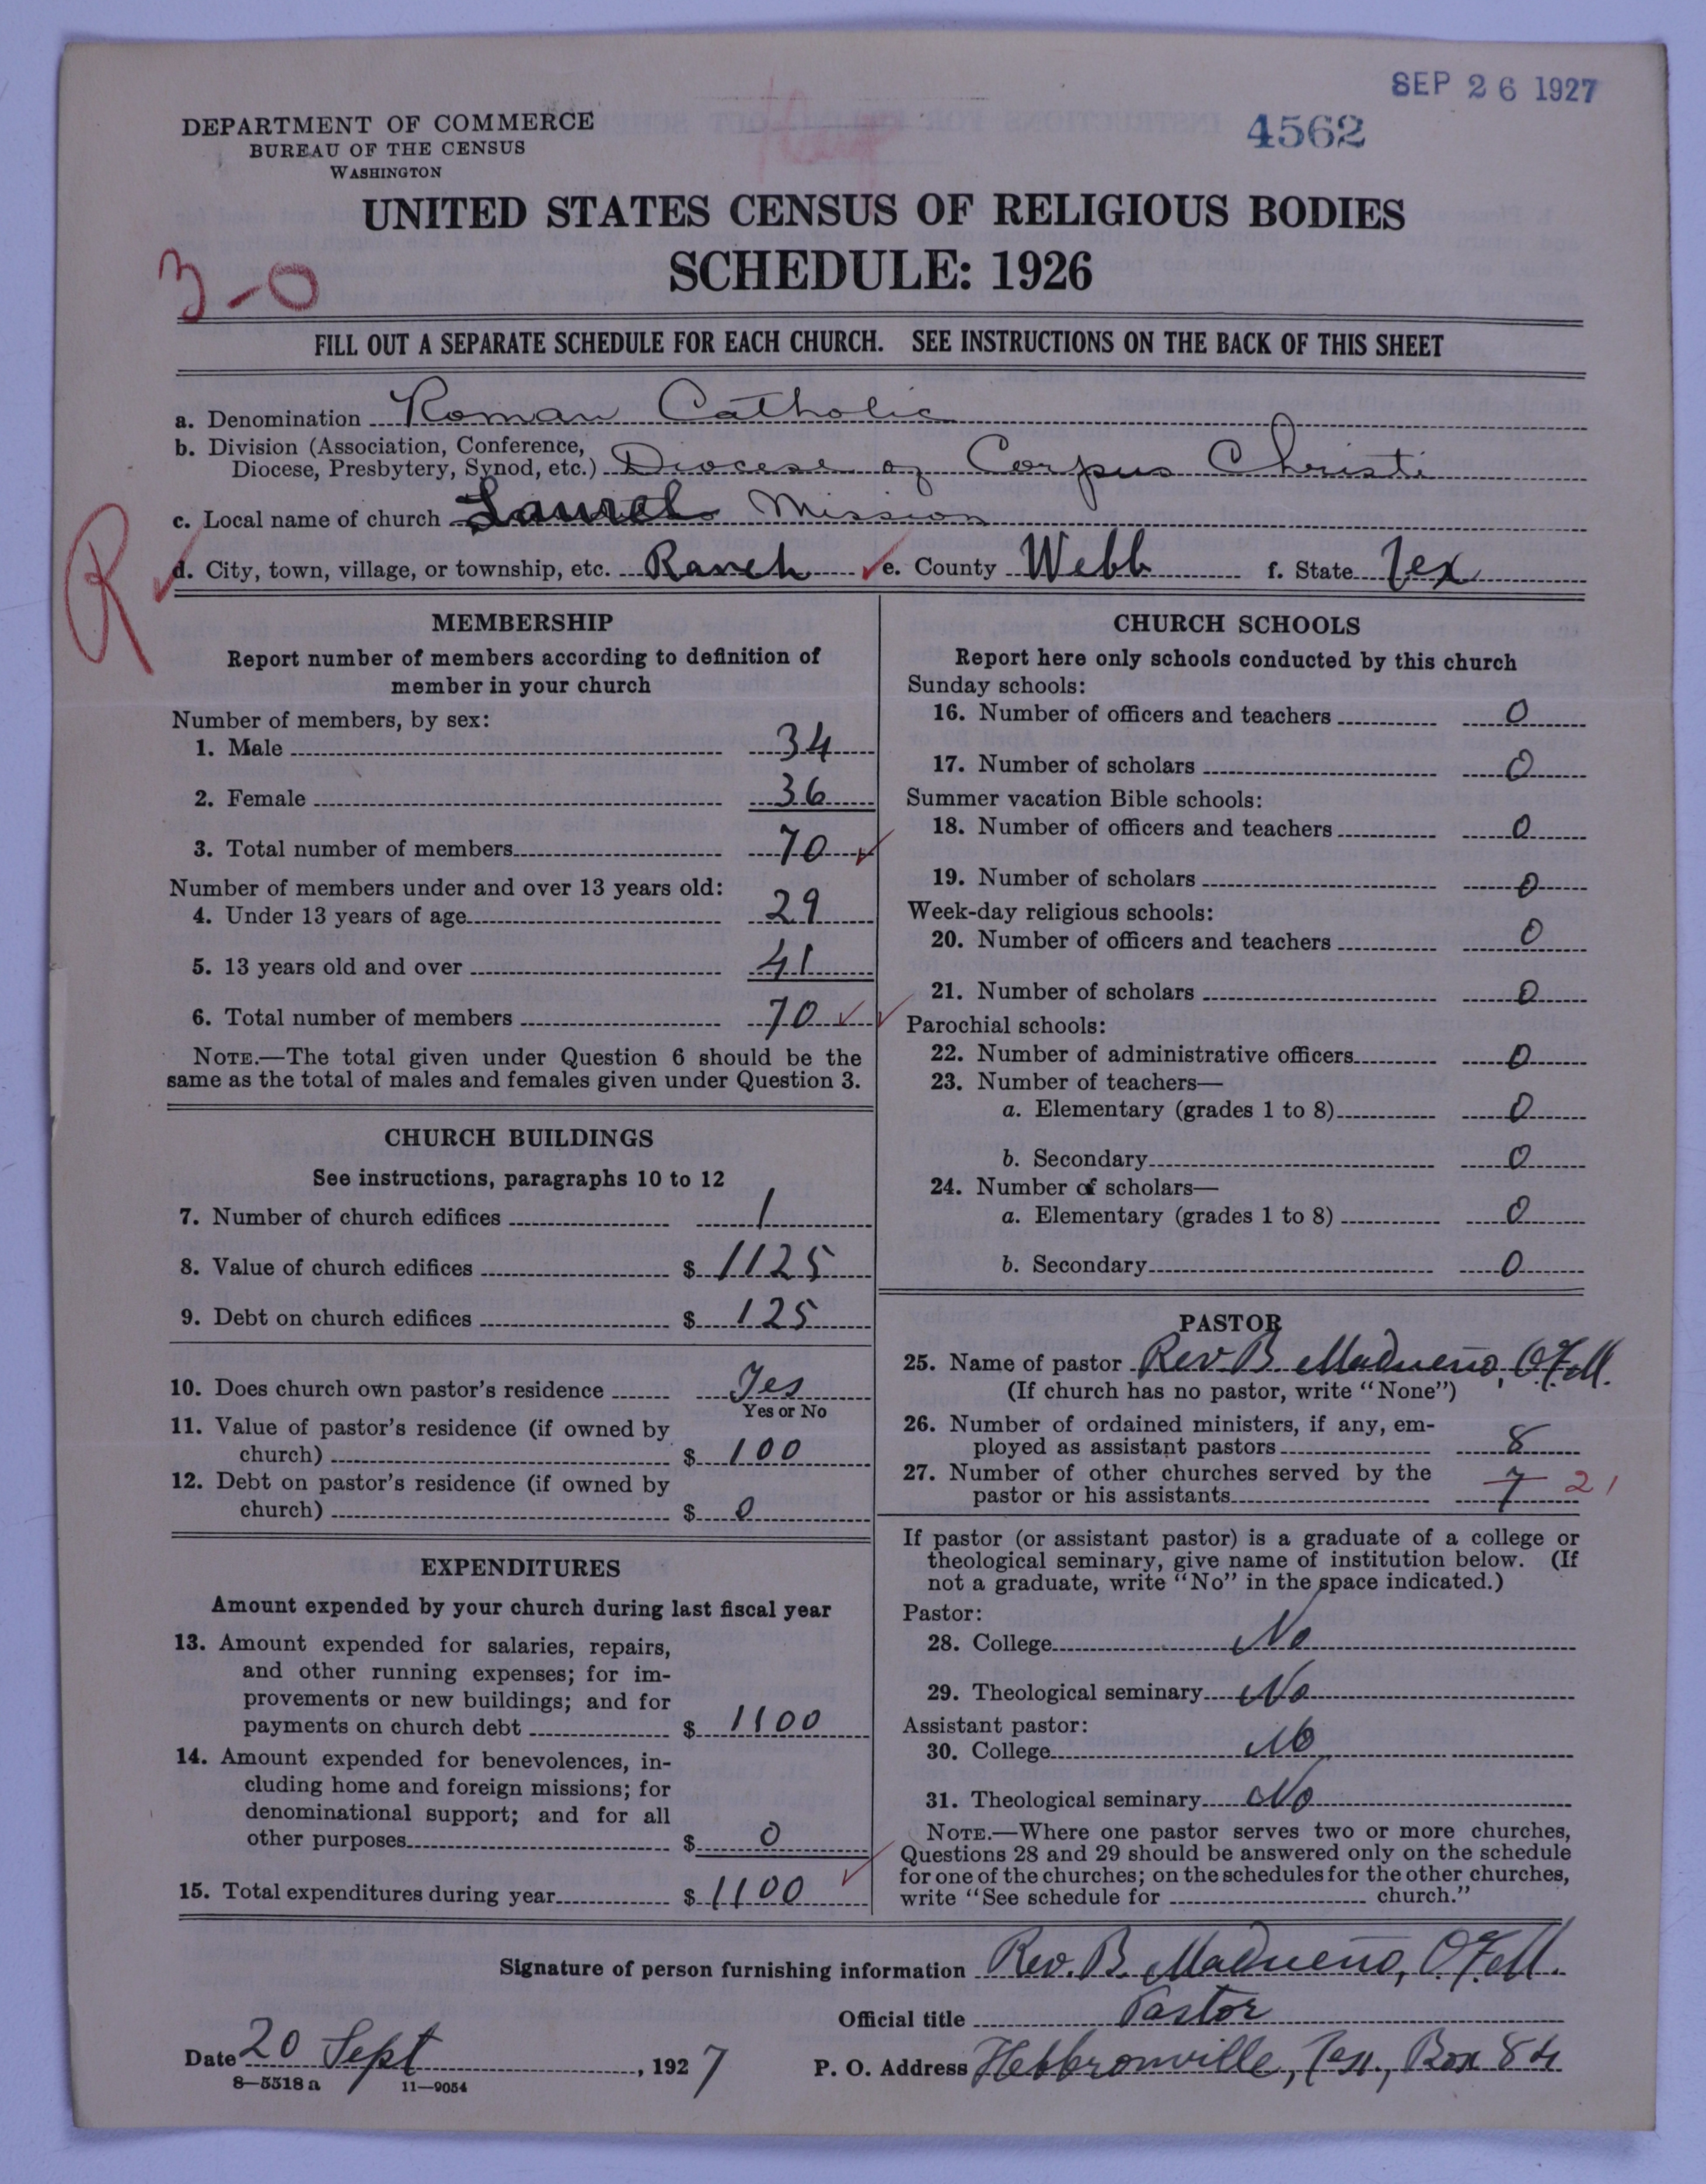 SEP 26 1927
4562
DEPARTMENT OF COMMERCE
BUREAU OF THE CENSUS
WASHINGTON
UNITED STATES CENSUS OF RELIGIOUS BODIES
SCHEDULE: 1926
3-0
FILL OUT A SEPARATE SCHEDULE FOR EACH CHURCH. SEE INSTRUCTIONS ON THE BACK OF THIS SHEET
a. Denomination Roman Catholic
b. Division (Association, Conference,
Diocese, Presbytery, Synod, etc.) Diocese of Corpus Christi
c. Local name of church Laurel Mission
R
d. City, town, village, or township, etc. Ranch e. County Webb f. State Tex
MEMBERSHIP
Report number of members according to definition of
member in your church
Number of members, by sex:
1. Male 34
2. Female 36
3. Total number of members 70
Number of members under and over 13 years old:
4. Under 13 years of age 29
5. 13 years old and over 41
6. Total number of members 70
NOTE.—The total given under Question 6 should be the
same as the total of males and females given under Question 3.
CHURCH BUILDINGS
See instructions, paragraphs 10 to 12
7. Number of church edifices 1
8. Value of church edifices $ 1125
9. Debt on church edifices $ 125
10. Does church own pastor's residence Yes
Yes or No
11. Value of pastor's residence (if owned by
church) $ 100
12. Debt on pastor's residence (if owned by
church) $ 0
EXPENDITURES
Amount expended by your church during last fiscal year
13. Amount expended for salaries, repairs,
and other running expenses; for im-
provements or new buildings; and for
payments on church debt $ 1100
14. Amount expended for benevolences, in-
cluding home and foreign missions; for
denominational support; and for all
other purposes $ 0
15. Total expenditures during year $ 1100
CHURCH SCHOOLS
Report here only schools conducted by this church
Sunday schools:
16. Number of officers and teachers 0
17. Number of scholars 0
Summer vacation Bible schools:
18. Number of officers and teachers 0
19. Number of scholars 0
Week-day religious schools:
20. Number of officers and teachers 0
21. Number of scholars 0
Parochial schools:
22. Number of administrative officers 0
23. Number of teachers—
a. Elementary (grades 1 to 8) 0
b. Secondary 0
24. Number of scholars—
a. Elementary (grades 1 to 8) 0
b. Secondary 0
PASTOR
25. Name of pastor Rev. B Madueño, O.F.M.
(If church has no pastor, write "None")
26. Number of ordained ministers, if any, em-
ployed as assistant pastors 8
27. Number of other churches served by the
pastor or his assistants 7 21
If pastor (or assistant pastor) is a graduate of a college or
theological seminary, give name of institution below. (If
not a graduate, write "No" in the space indicated.)
Pastor:
28. College No
29. Theological seminary No
Assistant pastor:
30. College No
31. Theological seminary No
NOTE.—Where one pastor serves two or more churches,
Questions 28 and 29 should be answered only on the schedule
for one of the churches; on the schedules for the other churches,
write "See schedule for church."
Signature of person furnishing information Rev. B. Madueño, O.F.M.
Official title Pastor
Date 20 Sept, 1927 P. O. Address Hebbronville, Tex., Box 84
8-5518 a 11-9054